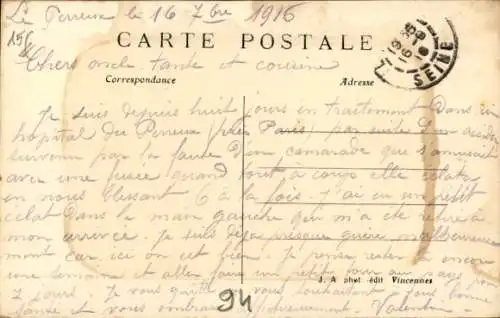 Le Perreux le 16 7bre 1916
158
CARTE POSTALE
Chers oncle tante et cousine
Correspondance
Adresse
SEINE
Je suis depuis huit jours en traitement dans un
hopital du Perreux (près Paris) par suite d'un accident
survenu par la faute d'un camarade que s'amusait
avec une fusée quand tout à coup elle éclata
en nous blessant 6 à la fois. J'ai eu un petit
éclat dans la main gauche qui m'a été retiré à
mon arrivée. Je suis déjà presque guéri malheureuse
ment car ici on est bien. Je pense rester encore
une semaine et aller faire un petit tour au pays pour
7 jours. Je vous quitte en vous souhaitant bonne
santé et vous embrasse affectueusement. Valentin
J. A phot édit Vincennes
94